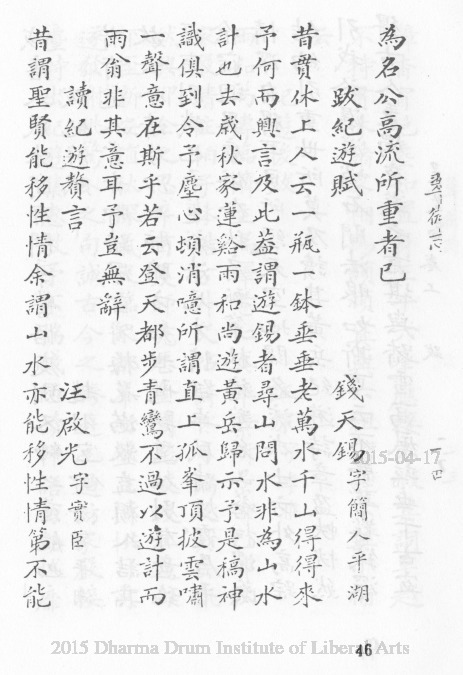 為名公高流所重者已
跋紀遊賦
錢天錫字簡人平湖
昔貫休上人云一瓶一鉢垂垂老萬水千山得得來
予何而興言及此葢謂遊錫者尋山問水非為山水
計也去歲秋家蓮谿雨和尚遊黃岳歸示予是稿神
識俱到令予塵心頓消噫所謂直上孤峯頂披雲嘯
一聲意在斯乎若云登天都步青鸞不過以遊計而
雨翁非其意耳予豈無辭
讀紀遊贅言
汪啟光字實臣
昔謂聖賢能移性情余謂山水亦能移性情第不能
2015-04-17
2015 Dharma Drum Institute of Liberal Arts
46